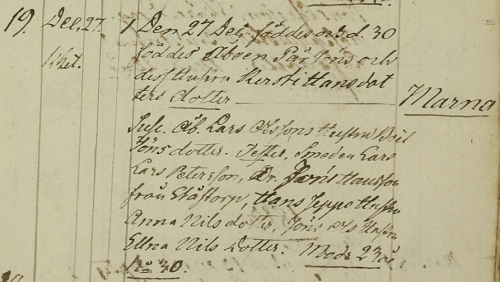 19. Dec. 27. 1 Den 27 Dec. föddes och d. 30
döptes Åboen Pär Jöns och
dess Hustru Kersti Hansdot
ters dotter Marna
Susc. Åb. Lars Olssons Hustru Boel
Jöns dotter. Testes, Smeden Lars
Lars Petersson, Dr. Jöns Hansson
från Ståstorp, Hans Jeppss Hustru
Anna Nils dotter, Jöns Ols Hustru
Ellna Nils Dotter. Modr 23 år
No 30.